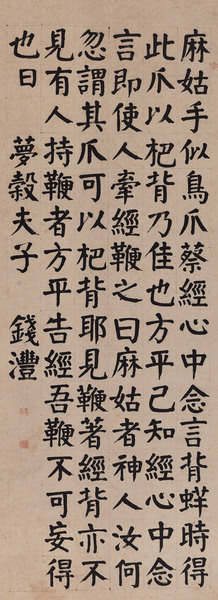 麻姑手似鳥爪蔡經心中念言背蛘時得
此爪以杷背乃佳也方平已知經心中念
言即使人牽經鞭之曰麻姑者神人汝何
忽謂其爪可以杷背耶見鞭著經背亦不
見有人持鞭者方平告經吾鞭不可妄得
也日 夢穀夫子 錢灃